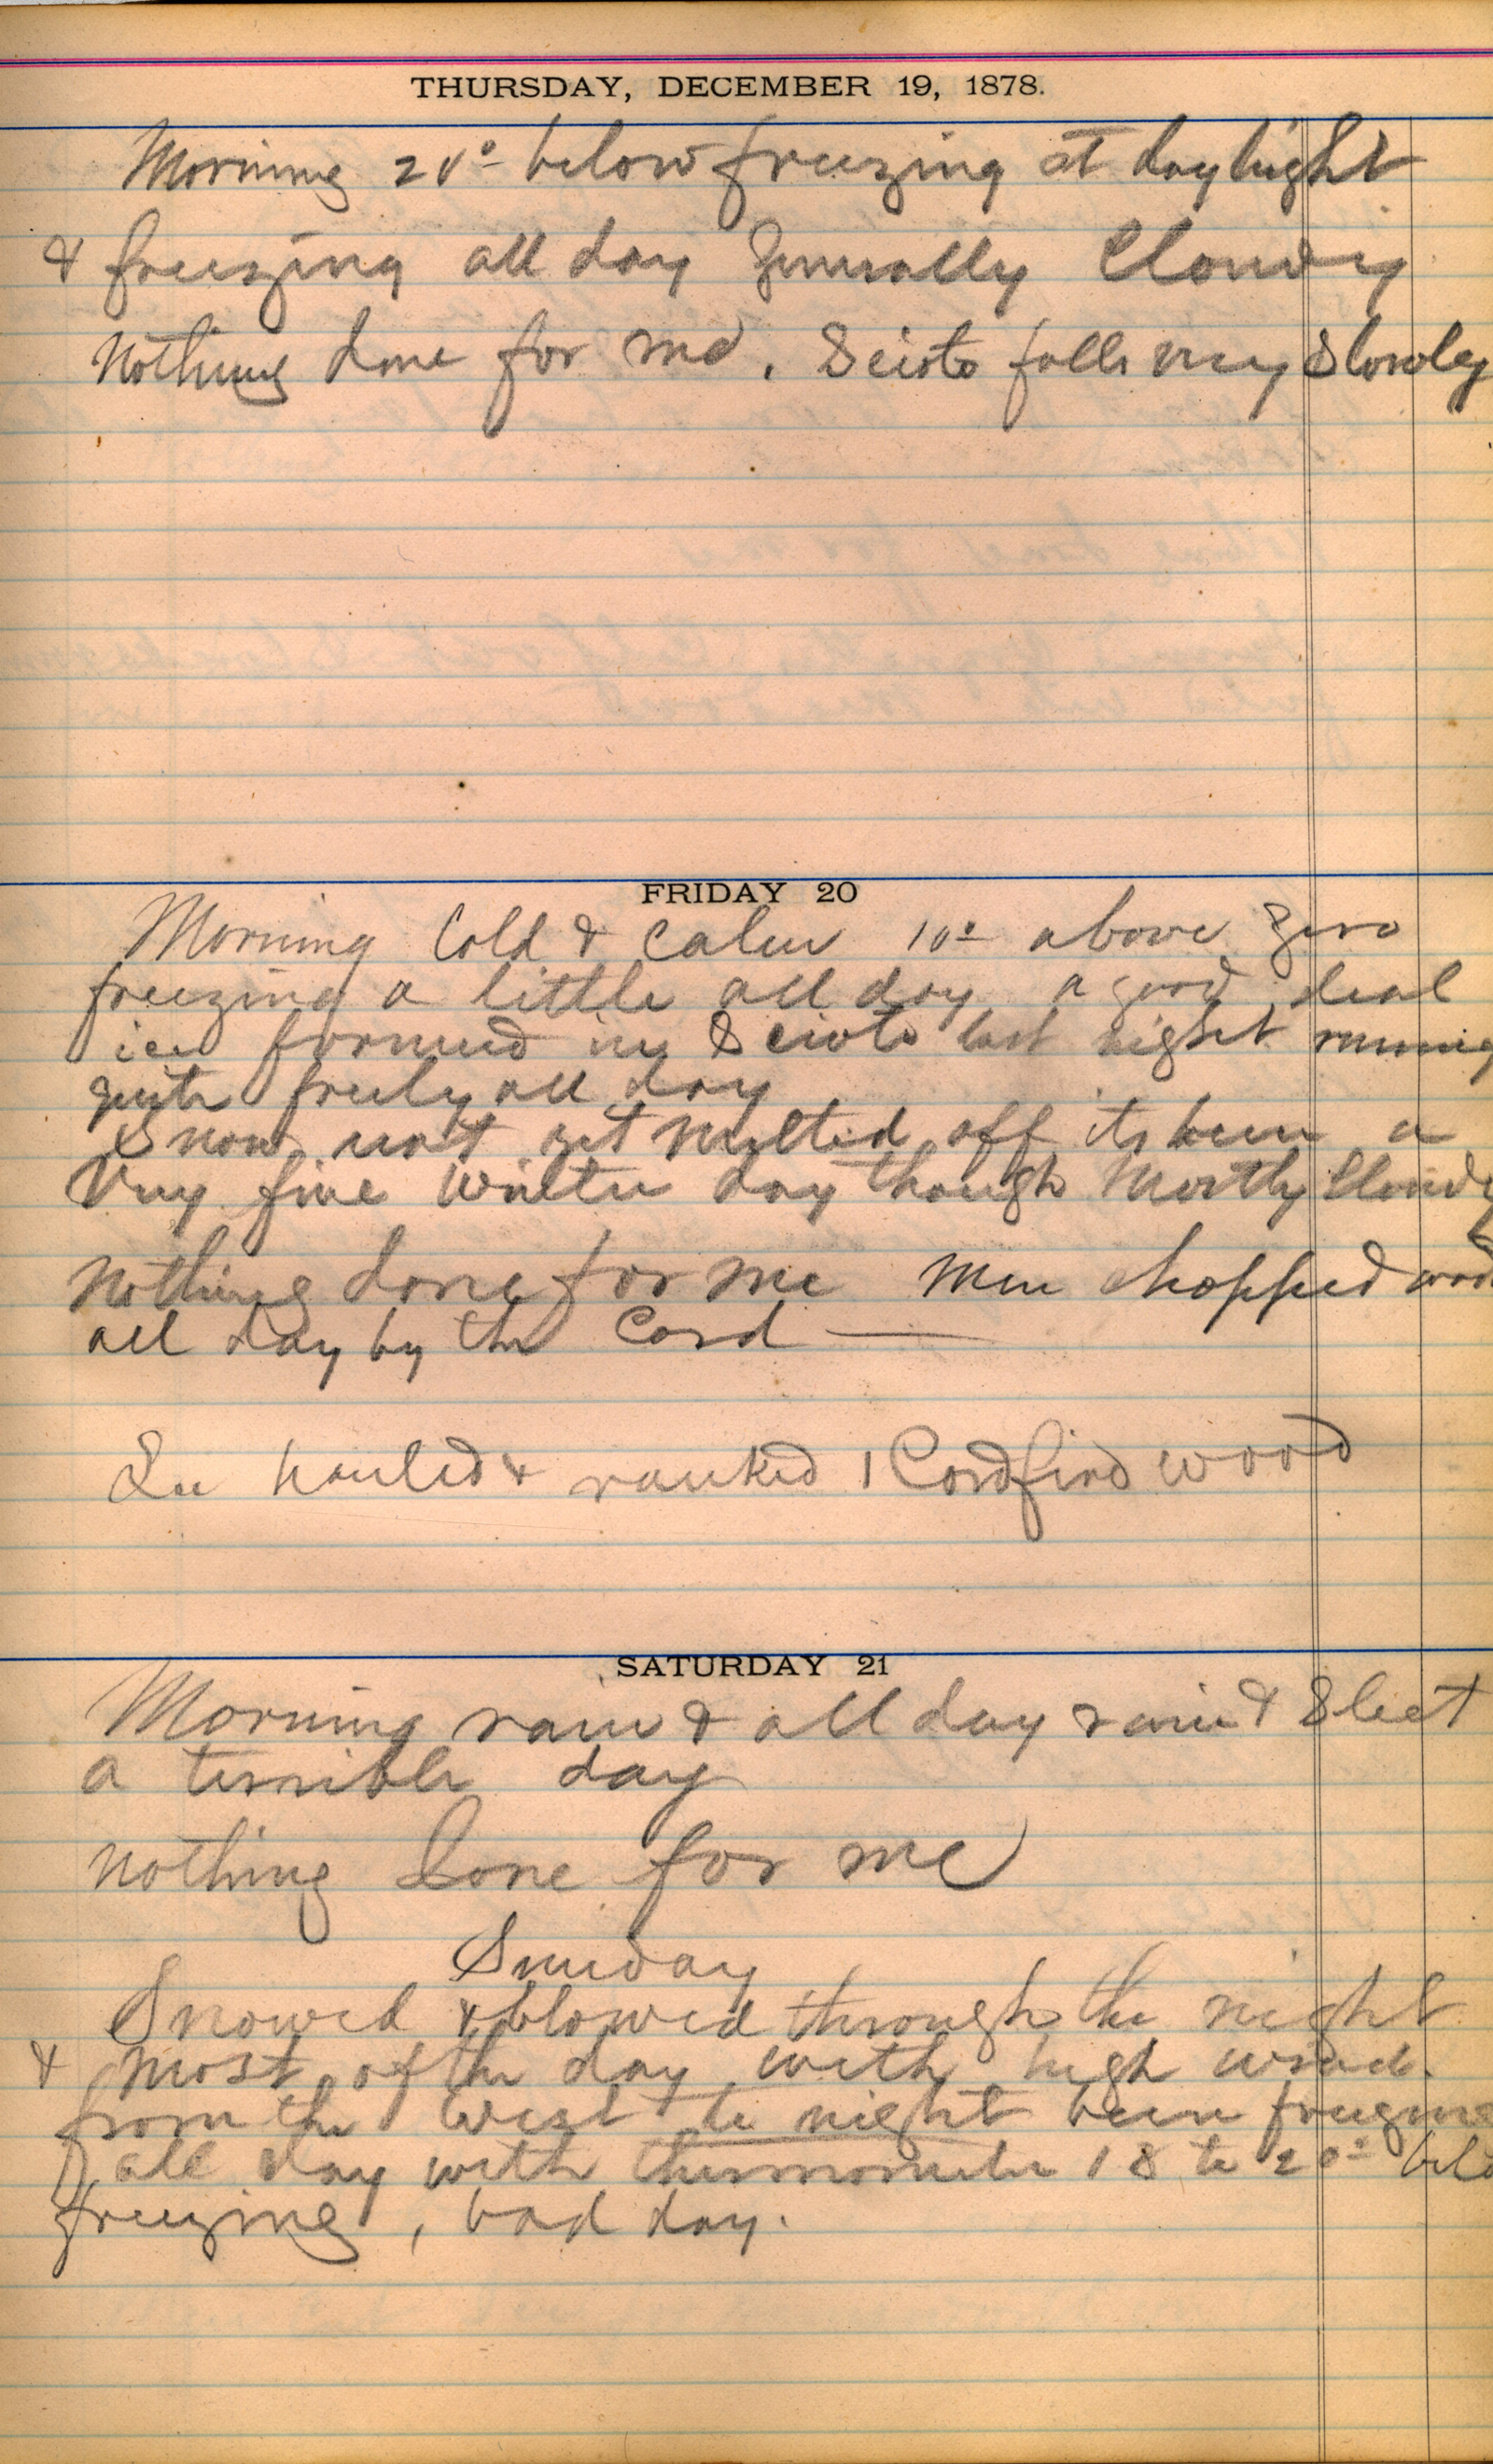 THURSDAY, DECEMBER 19, 1878.
Morning 20° below freezing at daylight
& freezing all day Generally Cloudy
Nothing done for me. Scioto falls very Slowley
FRIDAY 20
Morning Cold & Calm 10° above Zero
freezing a little all day a good deal
ice formed in Scioto last night running
quite freely all day
Snow not yet Melted off its been a
Very fine Winter day though Mostly Cloudy
Nothing done for me Men chopped wood
all day by the Cord
hauled & ranked 1 Cord fire wood
SATURDAY 21
Morning rain & all day rain & Sleet
a terrible day
nothing done for me
Sunday
Snowed & blowed through the night
& Most of the day with high wind
from the West to night been freezing
all day with thermometer 18 to 20° belo
freezing, bad day.